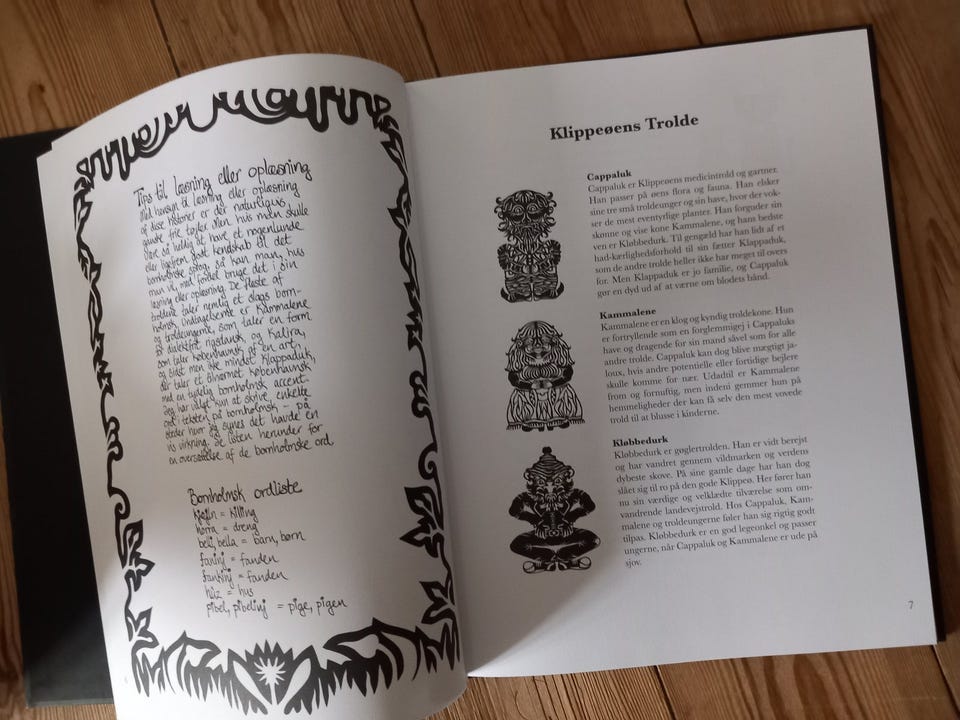 Tips til læsning eller oplæsning
Med hensyn til læsning eller oplæsning
af disse historier er der naturligvis
ganske frie tøjler. Men hvis man skulle
være så heldig at have et nogenlunde
eller ligefrem godt kendskab til det
bornholmske sprog, så kan man, hvis
man vil, med fordel bruge det i sin
læsning eller oplæsning. De fleste af
troldene taler nemlig et slags born-
holmsk. Undtagelserne er Kammalene
og troldeungerne, som taler en form
for dialektfrit rigsdansk, og Katjra,
som taler københavnsk af en art,
og sidst men ikke mindst Klappaduk,
der taler et skabornært københavnsk
med en tydelig bornholmsk accent.
Jeg har valgt kun at skrive enkelte
ord i teksten på bornholmsk – på
steder hvor jeg synes det havde en
vis virkning. Se listen herunder for
en oversættelse af de bornholmske ord.
Bornholmsk ordliste
kjøjln = killing
horra = dreng
belj, bella = barn, børn
faninj = fanden
frankinj = fanden
huz = hus
pibel, pibelinj = pige, pigen
Klippeøens Trolde
Cappaluk
Cappaluk er Klippeøens medicintrold og gartner.
Han passer på øens flora og fauna. Han elsker
sine tre små troldeunger og sin have, hvor der vok-
ser de mest eventyrlige planter. Han forguder sin
skønne og vise kone Kammalene, og hans bedste
ven er Kløbbedurk. Til gengæld har han lidt af et
had-kærlighedsforhold til sin fætter Klappaduk,
som de andre trolde heller ikke har meget til overs
for. Men Klappaduk er jo familie, og Cappaluk
gør en dyd ud af at værne om blodets bånd.
Kammalene
Kammalene er en klog og kyndig troldekone. Hun
er fortryllende som en forglemmigej i Cappaluks
have og dragende for sin mand såvel som for alle
andre trolde. Cappaluk kan dog blive mægtigt ja-
loux, hvis andre potentielle eller fortidige bejlere
skulle komme for nær. Udadtil er Kammalene
from og fornuftig, men indeni gemmer hun på
hemmeligheder der kan få selv den mest vovede
trold til at blusse i kinderne.
Kløbbedurk
Kløbbedurk er gøglertrolden. Han er vidt berejst
og har vandret gennem vildmarken og verdens
dybeste skove. På sine gamle dage har han dog
slået sig til ro på den gode Klippeø. Her fører han
nu sin værdige og velklædte tilværelse som om-
vandrende landevejstrold. Hos Cappaluk, Kam-
malene og troldeungerne føler han sig rigtig godt
tilpas. Kløbbedurk er en god legeonkel og passer
ungerne, når Cappaluk og Kammalene er ude på
sjov.
7